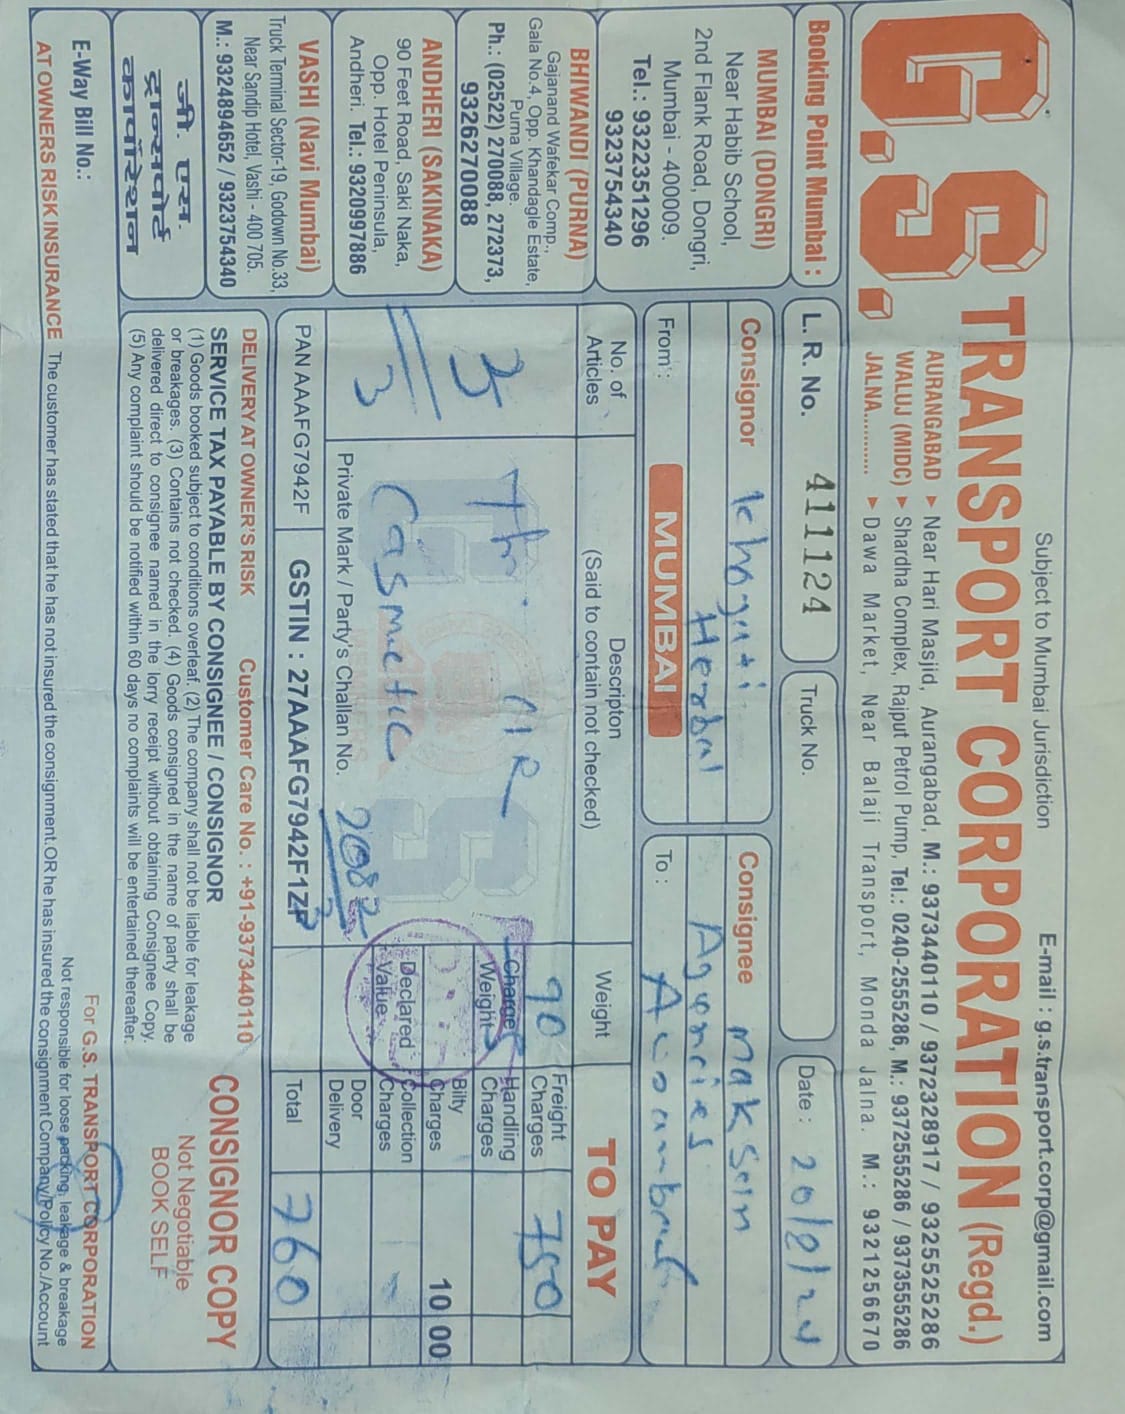 Subject to Mumbai Jurisdiction
E-mail : g.s.transport.corp@gmail.com
G.S. TRANSPORT CORPORATION (Regd.)
AURANGABAD ➤ Near Hari Masjid, Aurangabad, M.: 9373440110 / 9372328917 / 9325525286
WALUJ (MIDC) ➤ Shardha Complex, Rajput Petrol Pump, Tel.: 0240-2555286, M.: 9372555286 / 9373555286
JALNA............ ➤ Dawa Market, Near Balaji Transport, Monda Jalna. M.: 9321256670
Booking Point Mumbai :
L. R. No. 411124
Truck No.
Date : 20/8/24
MUMBAI (DONGRI)
Near Habib School,
2nd Flank Road, Dongri,
Mumbai - 400009.
Tel.: 9322351296
9323754340
BHIWANDI (PURNA)
Gajanand Wafekar Comp.,
Gala No.4, Opp. Khandagle Estate,
Purna Village.
Ph.: (02522) 270088, 272373,
9326270088
ANDHERI (SAKINAKA)
90 Feet Road, Saki Naka,
Opp. Hotel Peninsula,
Andheri. Tel.: 9320997886
VASHI (Navi Mumbai)
Truck Terminal Sector-19, Godown No.33,
Near Sandip Hotel, Vashi - 400 705.
M.: 9324894652 / 9323754340
जी. एस.
ट्रान्सपोर्ट
कार्पोरेशन
Consignor
Herbal
From :
MUMBAI
Consignee
Agencies
To :
No. of
Articles
Descripton
(Said to contain not checked)
Weight
TO PAY
3
3
Casmetic
90
Charge
Weight
Declared
Value
Freight
Charges
750
Handling
Charges
Bilty
Charges
10 00
Collection
Charges
Door
Delivery
Private Mark / Party's Challan No.
PAN AAAFG7942F
GSTIN : 27AAAFG7942F1ZP
Total
760
DELIVERY AT OWNER'S RISK Customer Care No. : +91-9373440110
SERVICE TAX PAYABLE BY CONSIGNEE / CONSIGNOR
(1) Goods booked subject to conditions overleaf (2) The company shall not be liable for leakage
or breakages. (3) Contains not checked. (4) Goods consigned in the name of party shall be
delivered direct to consignee named in the lorry receipt without obtaining Consignee Copy.
(5) Any complaint should be notified within 60 days no complaints will be entertained thereafter.
CONSIGNOR COPY
Not Negotiable
BOOK SELF
For G.S. TRANSPORT CORPORATION
E-Way Bill No.:
Not responsible for loose packing, leakage & breakage
AT OWNERS RISK INSURANCE The customer has stated that he has not insured the consignment.OR he has insured the consignment Company/Policy No./Account